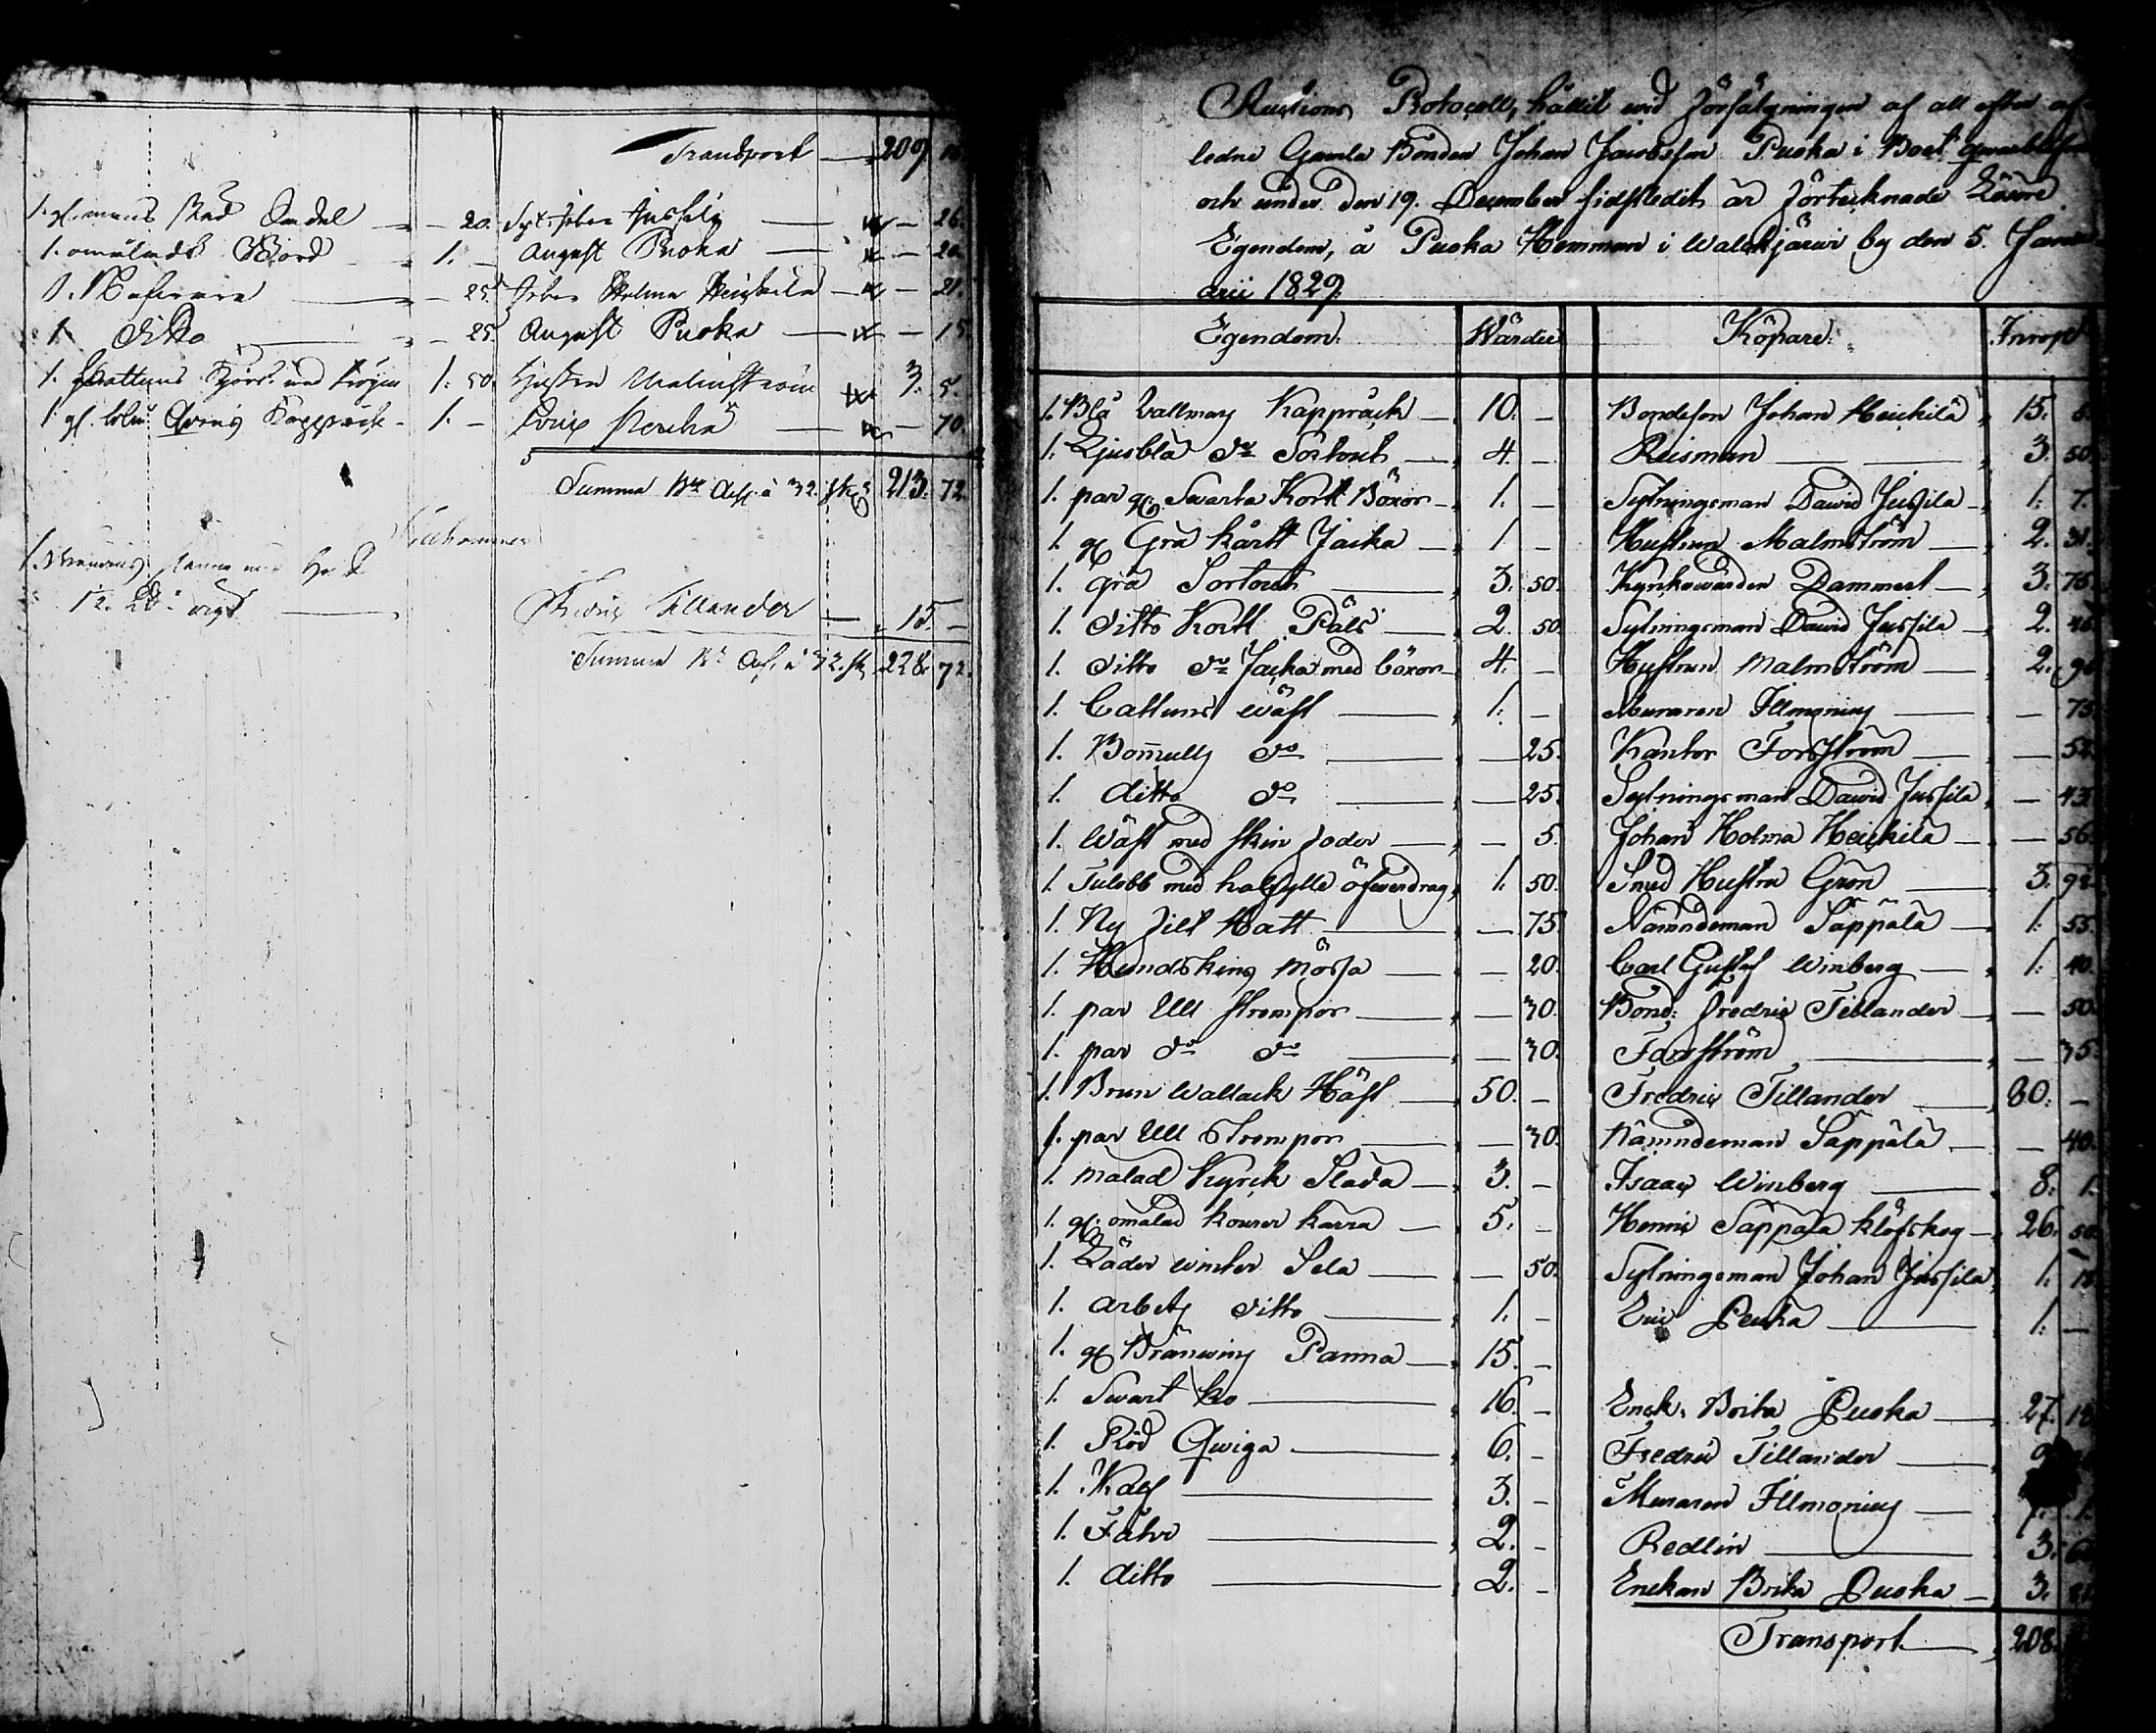 Transport — 209.
1. gl. — 20. Jussila — 26.
1. omåladt Bord — 1. — August Puoka — 20.
1. — 25. Johan Holma Heickilä — 21.
1. ditto — 25. August Puoka — 15.
1. Cattuns med tröja 1. 50. Hustru Malmström 3. 5.
1 gl. Kappråck 1. — — 70.
Summa B:co Ass. à 32. sk. 213. 72.
Tillkommer
1. Bränvins Panna med
12. ℔ wigt — Fredric Tillander — 15. —
Summa B:co Ass. à 32. sk. 228. 72.
Auctions Protocoll, hållit wid försälgningen af all efter af-
ledne Gamla Bonden Johan Jacobsson Puoka i Boet
och under den 19. December sidstledit år förtecknade Lösöre
Egendom, å Puoka Hemman i Walckjärwi by den 5. Janu-
arii 1829.
Egendom. Wärde Köpare. Inrop
1. Blå Vallmars Kappråck — 10. — Bondeson Johan Heickilä 15. 6.
1. Ljusblå d:o Sortout — 4. — Reisman — 3. 50.
1. par gl. Swarta Kortt Böxor — 1. — Sytningsman Dawid Jussila — 1. 7.
1. gl Grå kortt Jacka — 1 — Hustrun Malmström — 2. 31.
1. Grå Sortout — 3. 50. Kyrkowärden Dammert — 3. 75.
1. ditto Kortt Päls — 2. 50. Sytningsman Dawid Jussila — 2. 45.
1. ditto d:o Jacka med böxor — 4. — Hustrun Malmström — 2. 90
1. Cattuns wäst — 1. — Muraren Illmonius — 75.
1. Bomulls d:o — 25. Kantor Forsström — 52.
1. ditto d:o — 25. Sytningsman Dawid Jussila — 43.
1. Wäst med skin foder — 5. Johan Holma Heickilä — 56.
1. Tulubb med halfylle öfwerdrag, 1. 50. Smed Hustru Grön — 3. 92.
1. Ny filt Hatt — 75 Nämndeman Säppälä — 1. 55.
1. Hundskins mössa — 20. Carl Gustaf Winberg — 1. 40.
1. par Ull strumpor — 30. Bond: Fredric Tillander — 50.
1. par d:o d:o — 30. Forsström — 35.
1. Brun Wallack Häst — 50. — Fredric Tillander — 80. —
1. par Ull Strumpor — 30. Nämndeman Säppälä — 40.
1. målad Kyrck Släda — 3. — Isaac Winberg — 8. 1.
1. gl. omålad kourer kärra — 5. — Henric Säppälä Klöfskog — 26. 50.
1. Läder winter Sela — 50. Sytningsman Johan Jussila 1. 12
1. arbets ditto — 1. — Eric — 1. —
1. gl Bränwins Panna — 15. —
1. Swart ko — 16. — Enck. Brita Puoka — 27. 18
1. Röd Qwiga — 6. — Fredric Tillander — 9.
1. Kalf — 3. — Muraren Illmonius —
1. Fåhr — 2. — Redlin — 3.
1. ditto — 2. — Enckan Brita Puoka — 3.
Transport — 208.